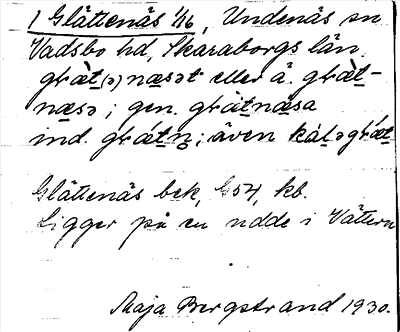 1 Glättenäs 1/16, Undenäs sn
Vadsbo hd, Skaraborgs län.
græ̀t(ə)næsət eller ä. græ̀t-
næsə; gen. græ̀tnæ̀sa
ind. grǽtn; även kálə grǽt
Glättenäs bek, G54, kb.
Ligger på en udde i Vättern
Maja Bergstrand 1930.